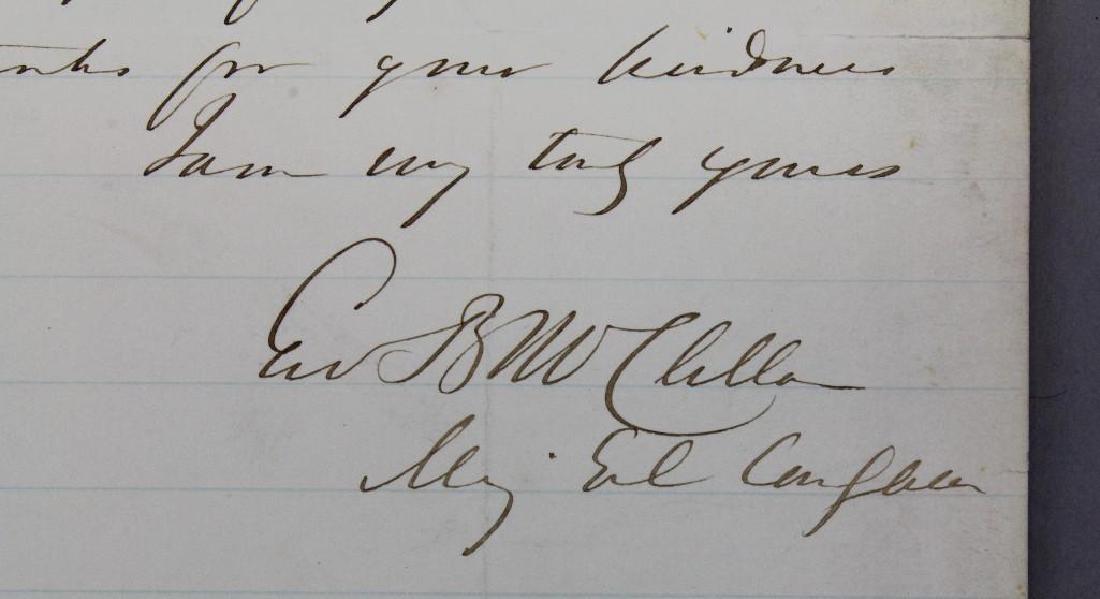 for your kindness
I am very truly yours
Geo B McClellan
Maj Genl Comdg